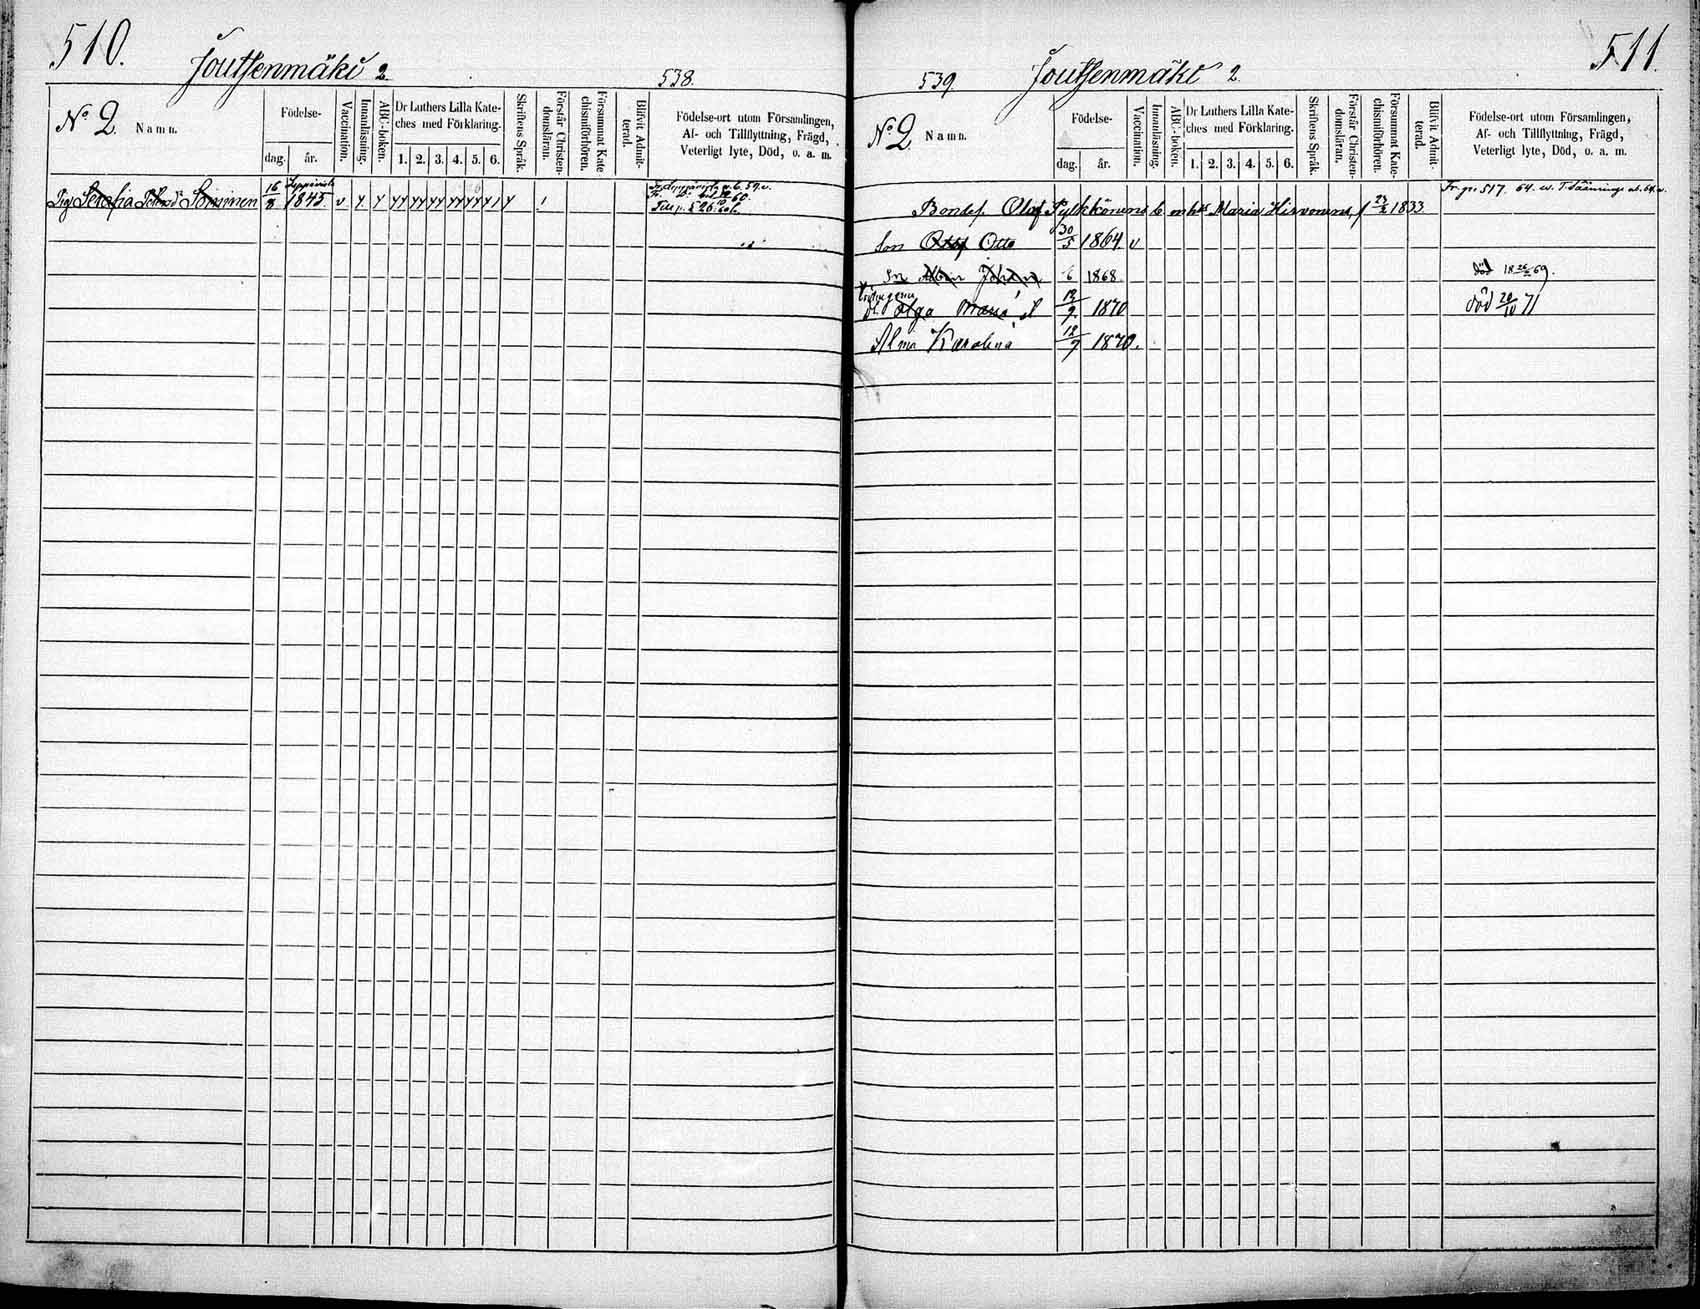 510.
Joutsenmäki 2
538.
No 2.
Namn.
Födelse-
dag.
år.
Vaccination.
Innanläsning.
ABC-boken.
Dr Luthers Lilla Kate-
ches med Förklaring.
1. 2. 3. 4. 5. 6.
Skriftens Språk.
Förstår Christen-
domsläran.
Försummat Kate
chismiförhören.
Blifvit Admit-
terad.
Födelse-ort utom Församlingen,
Af- och Tillflyttning, Frägd,
Veterligt lyte, Död, o. a. m.
Pig Serafia Simmen 16/8 1845 v
539.
Joutsenmäki 2
511.
No 2
Namn.
Födelse-
dag.
år.
Vaccination.
Innanläsning.
ABC-boken.
Dr Luthers Lilla Kate-
ches med Förklaring.
1. 2. 3. 4. 5. 6.
Skriftens Språk.
Förstår Christen-
domsläran.
Försummat Kate-
chismiförhören.
Blifvit Admit-
terad.
Födelse-ort utom Församlingen,
Af- och Tillflyttning, Frägd,
Veterligt lyte, Död, o. a. m.
Bondes. Olof Pylkkönens Maria Hirvonens 1833 Fr. p. 517. 64.
Son Otto 30/5 1864 v
Johan 6 1868 död 18 69.
Olga Maria 12/9 1870 död 20/10 71
Alma Karolina 12/9 1870.